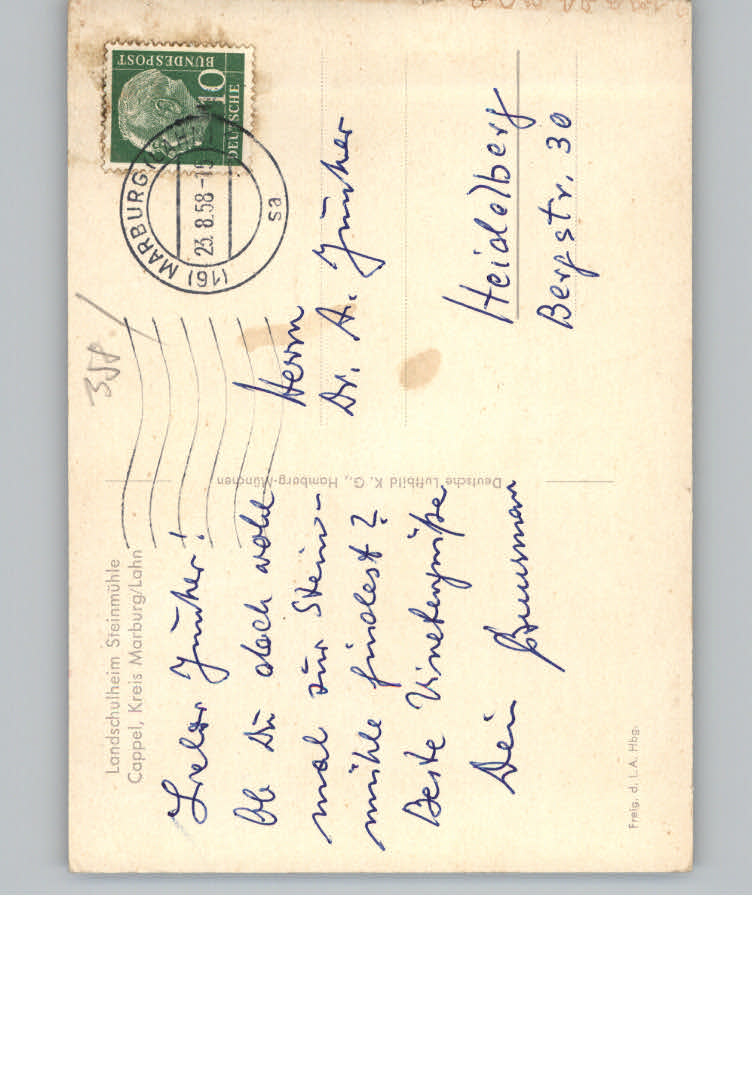 Landschulheim Steinmühle
Cappel, Kreis Marburg/Lahn
Lieber Günther!
Ob Du doch wohl
mal zur Stein-
mühle findest?
Beste
Dein
Freig. d. L.A. Hbg.
Deutsche Luftbild K. G., Hamburg-München
DEUTSCHE
BUNDESPOST
10
(16) MARBURG
23.8.58
sa
358
Herrn
Dr. A. Günther
Heidelberg
Bergstr. 30